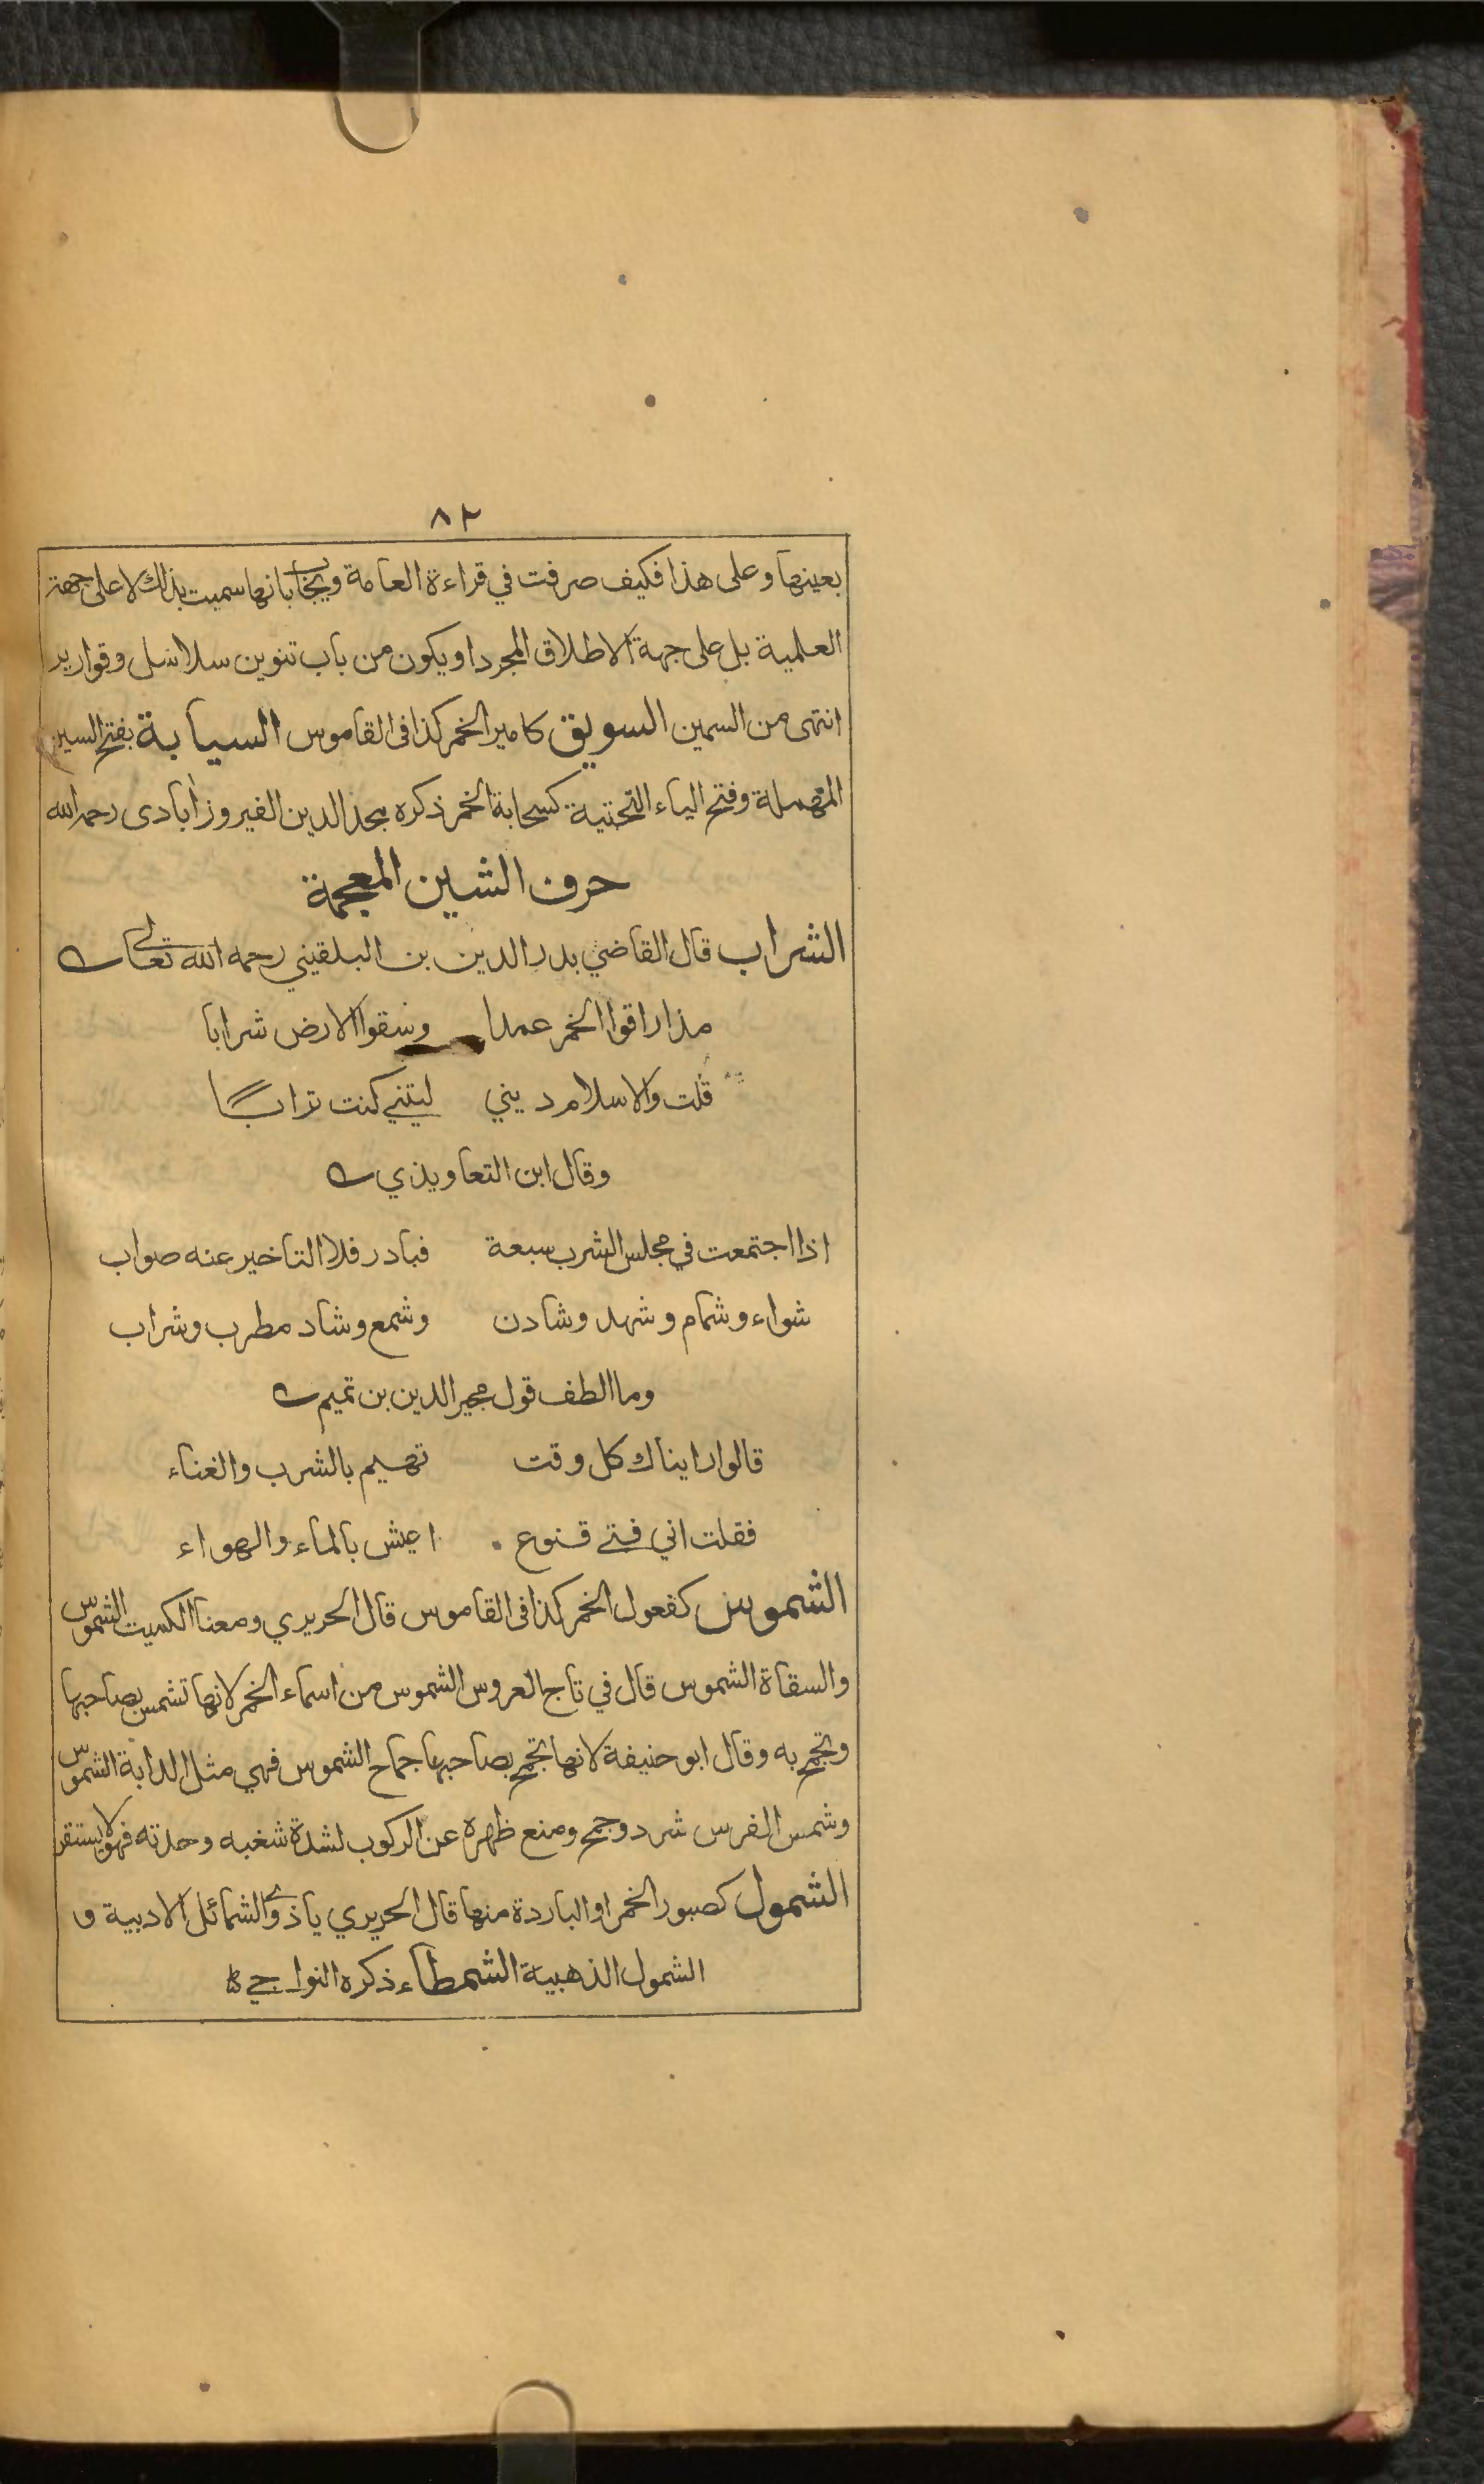 ٨٢
بعينها وعلى هذا فكيف صرفت في قراءة العامة ويجاب بانها سميت بذلك لا على جهة
العلمية بل على جهة الاطلاق المجرد او يكون من باب تنوين سلاسل وقوارير
انتهى من السمين السويق كامير الخمر كذا فى القاموس السيابة بفتح السين
المهملة وفتح الياء التحتية كسحابة الخمر ذكره مجد الدين الفيروزآبادى رحمه الله
حرف الشين المعجمة
الشراب قال القاضي بدر الدين بن البلقيني رحمه الله تعالى
مذ اراقوا الخمر عمدا وسقوا الارض شرابا
قلت والاسلام ديني ليتني كنت ترابا
وقال ابن التعاويذي
اذا اجتمعت في مجلس الشرب سبعة فبادر فلا التاخير عنه صواب
شواء وشمام وشهد وشادن وشمع وشاد مطرب وشراب
وما الطف قول مجير الدين بن تميم
قالوا رايناك كل وقت تهيم بالشرب والغناء
فقلت اني فتى قنوع اعيش بالماء والهواء
الشموس كفعول الخمر كذا فى القاموس قال الحريري ومعنا الكميت الشموس
والسقاة الشموس قال في تاج العروس الشموس من اسماء الخمر لانها تشمس بصاحبها
وتجمح به وقال ابو حنيفة لانها تجمح بصاحبها جماح الشموس فهي مثل الدابة الشموس
وشمس الفرس شرد وجمح ومنع ظهره عن الركوب لشدة شغبه وحدته فهو لا يستقر
الشمول كصبور الخمر او الباردة منها قال الحريري ياذوي الشمائل الادبية و
الشمول الذهبية الشمطاء ذكره النواجي